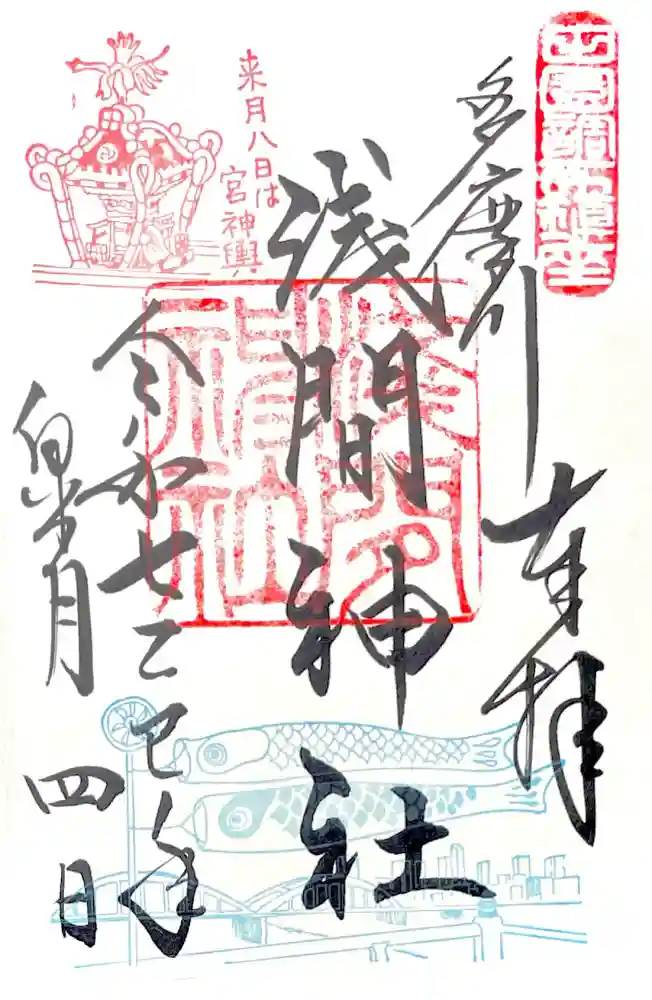 田園調布鎮座
多摩川
奉拝
浅間神社
来月八日は
宮神輿
令和七乙巳年
皐月
四日